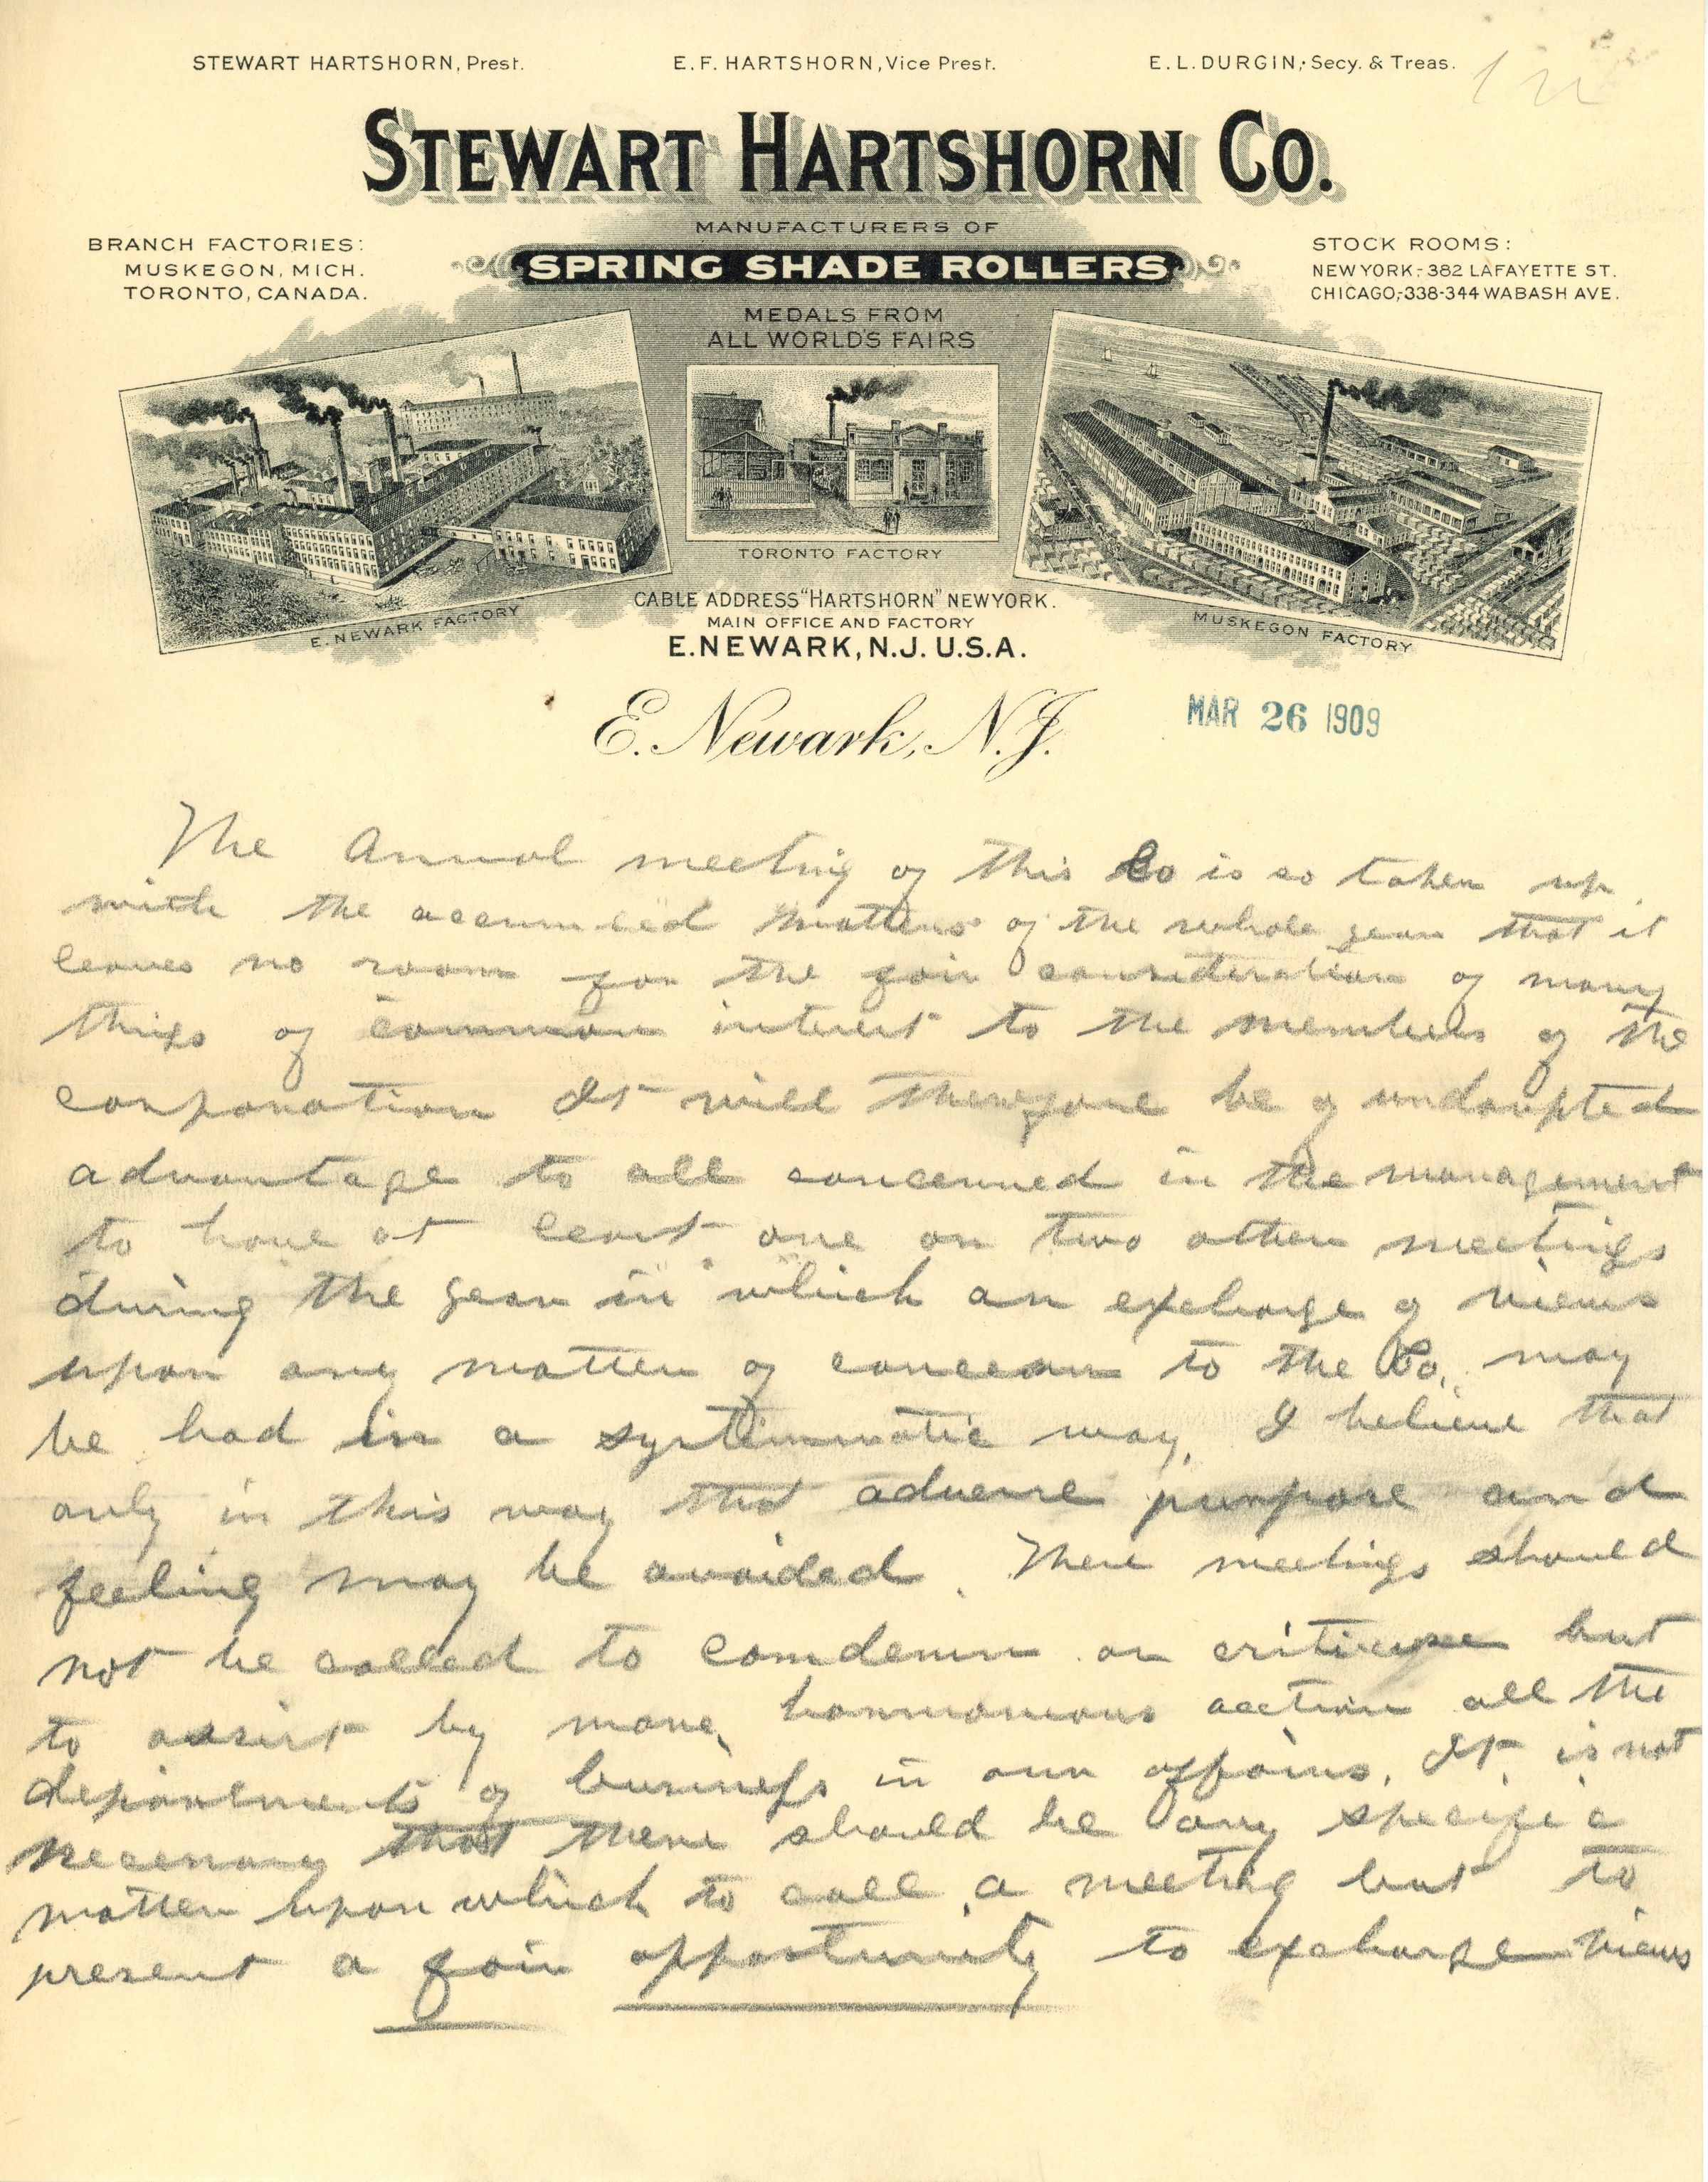 STEWART HARTSHORN, Prest. E. F. HARTSHORN, Vice Prest. E. L. DURGIN, Secy. & Treas.
STEWART HARTSHORN CO.
MANUFACTURERS OF
SPRING SHADE ROLLERS
BRANCH FACTORIES:
MUSKEGON, MICH.
TORONTO, CANADA.
STOCK ROOMS:
NEW YORK:- 382 LAFAYETTE ST.
CHICAGO,-338-344 WABASH AVE.
MEDALS FROM
ALL WORLD'S FAIRS
E. NEWARK FACTORY
TORONTO FACTORY
MUSKEGON FACTORY
CABLE ADDRESS "HARTSHORN" NEW YORK.
MAIN OFFICE AND FACTORY
E. NEWARK, N.J. U.S.A.
E. Newark, N.J. MAR 26 1909
The Annual meeting of this Co is so taken up
with the matters of the whole year that it
leaves no room for the fair consideration of many
things of common interest to the members of the
corporation It will therefore be of undoupted
advantage to all concerned in the management
to have at least one or two other meetings
during the year in which an exchange of views
upon any matter of concern to the Co. may
be had in a systimmatic way, I believe that
only in this way that adverse purpose and
feeling may be avoided. These meetings should
not be called to comdemn or but
to assist by more, harmoneous acction all the
departments of business in our affairs. It is not
necessary that there should be any specific
matter upon which to call a meeting but to
present a fair opportunity to exchange views